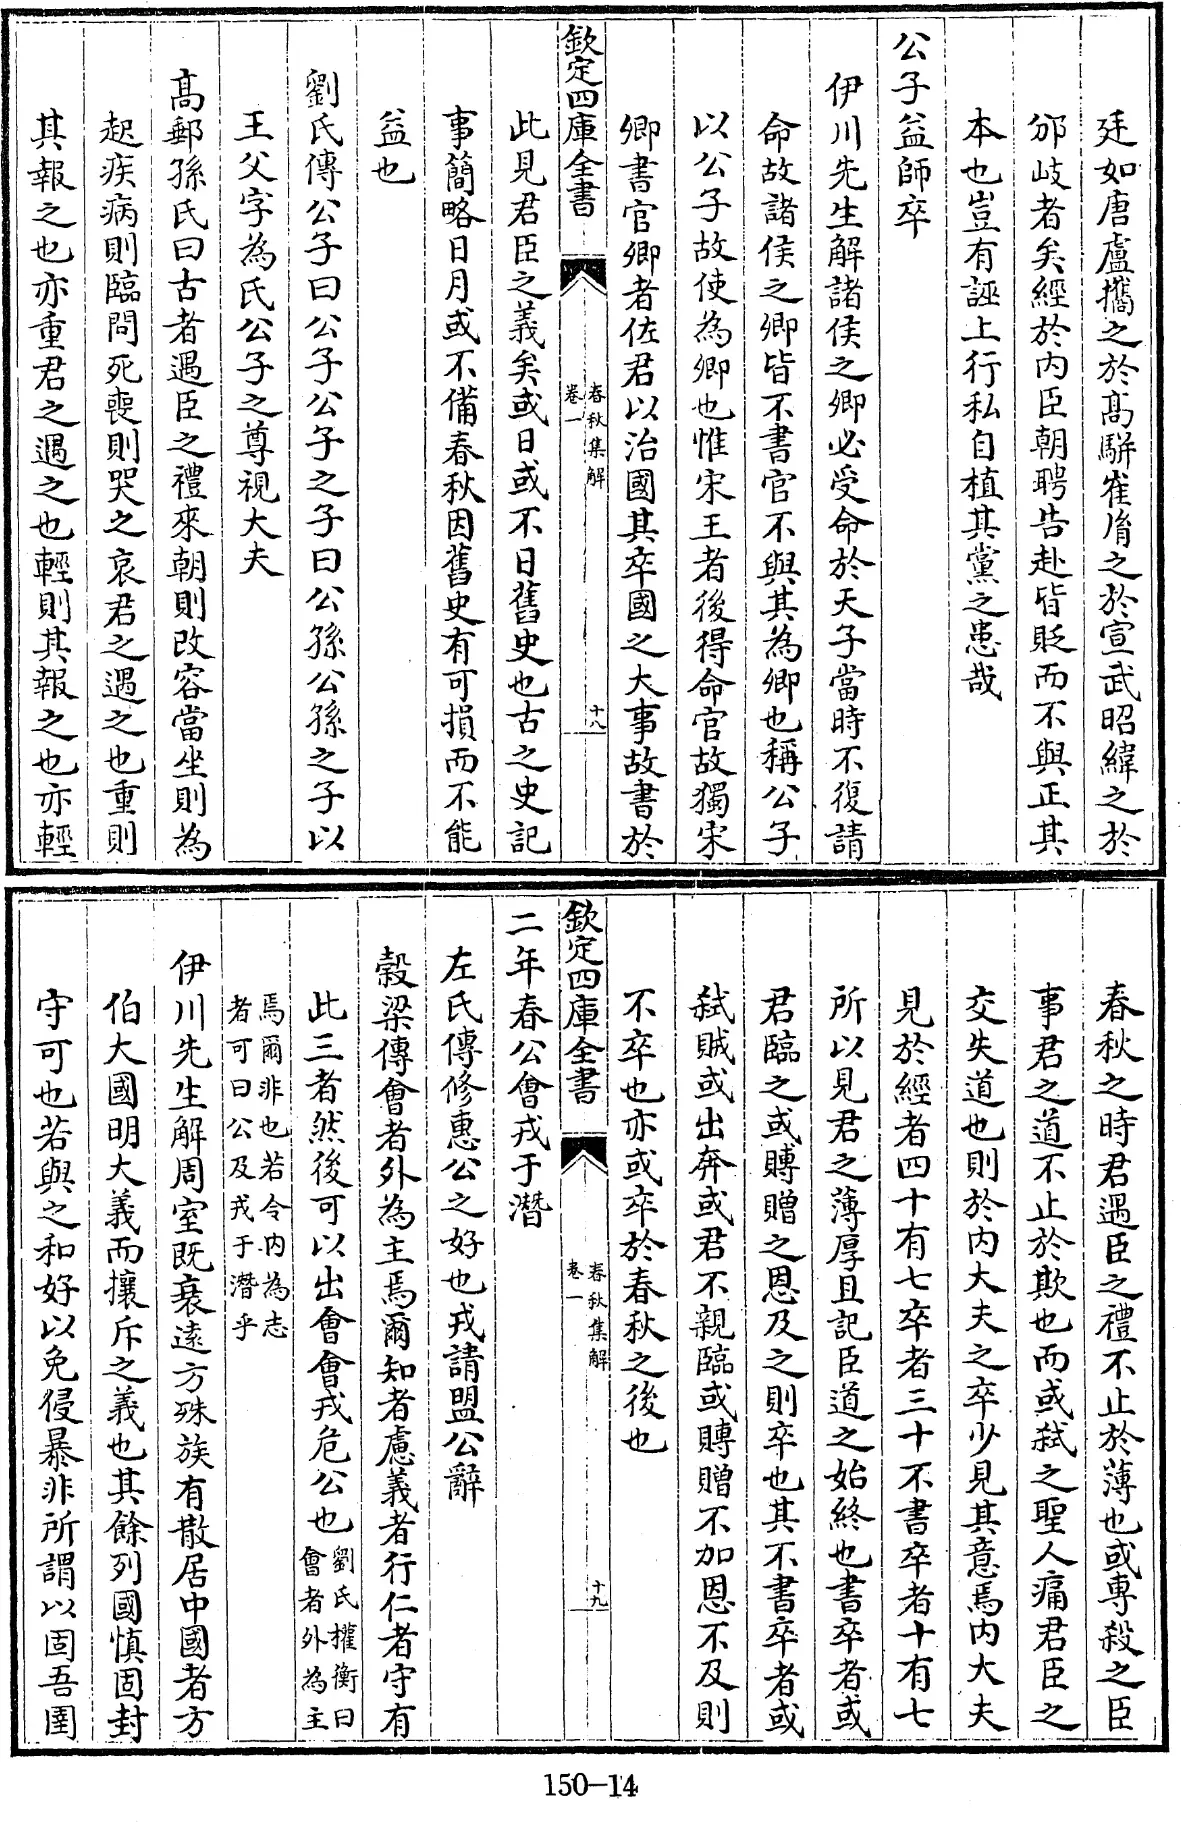 廷如唐盧攜之於髙駢崔𦙍之於宣武昭緯之於
邠岐者矣經於内臣朝聘告赴皆貶而不與正其
本也豈有誣上行私自植其黨之患哉
公子益師卒
伊川先生解諸侯之卿必受命於天子當時不復請
命故諸侯之卿皆不書官不與其為卿也稱公子
以公子故使為卿也惟宋王者後得命官故獨宋
卿書官卿者佐君以治國其卒國之大事故書於
欽定四庫全書
春秋集解
卷一
十八
此見君臣之義矣或日或不日舊史也古之史記
事簡略日月或不備春秋因舊史有可損而不能
益也
劉氏傳公子曰公子公子之子曰公孫公孫之子以
王父字為氏公子之尊視大夫
髙郵孫氏曰古者遇臣之禮來朝則改容當坐則為
起疾病則臨問死喪則哭之哀君之遇之也重則
其報之也亦重君之遇之也輕則其報之也亦輕
春秋之時君遇臣之禮不止於薄也或專殺之臣
事君之道不止於欺也而或弑之聖人痛君臣之
交失道也則於内大夫之卒少見其意焉内大夫
見於經者四十有七卒者三十不書卒者十有七
所以見君之薄厚且記臣道之始終也書卒者或
君臨之或賻贈之恩及之則卒也其不書卒者或
弑賊或出奔或君不親臨或賻贈不加恩不及則
不卒也亦或卒於春秋之後也
欽定四庫全書
春秋集解
卷一
十九
二年春公會戎于潛
左氏傳修惠公之好也戎請盟公辭
穀梁傳會者外為主焉爾知者慮義者行仁者守有
此三者然後可以出會會戎危公也劉氏權衡曰會者外為主
焉爾非也若令内為志者可曰公及戎于潛乎
伊川先生解周室既衰逺方殊族有散居中國者方
伯大國明大義而攘斥之義也其餘列國慎固封
守可也若與之和好以免侵暴非所謂以固吾圉
150-14